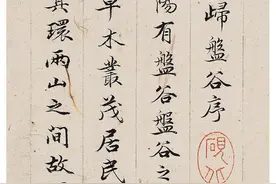 歸盤谷序
陽有盤谷盤谷之
草木叢茂居民
其環兩山之間故